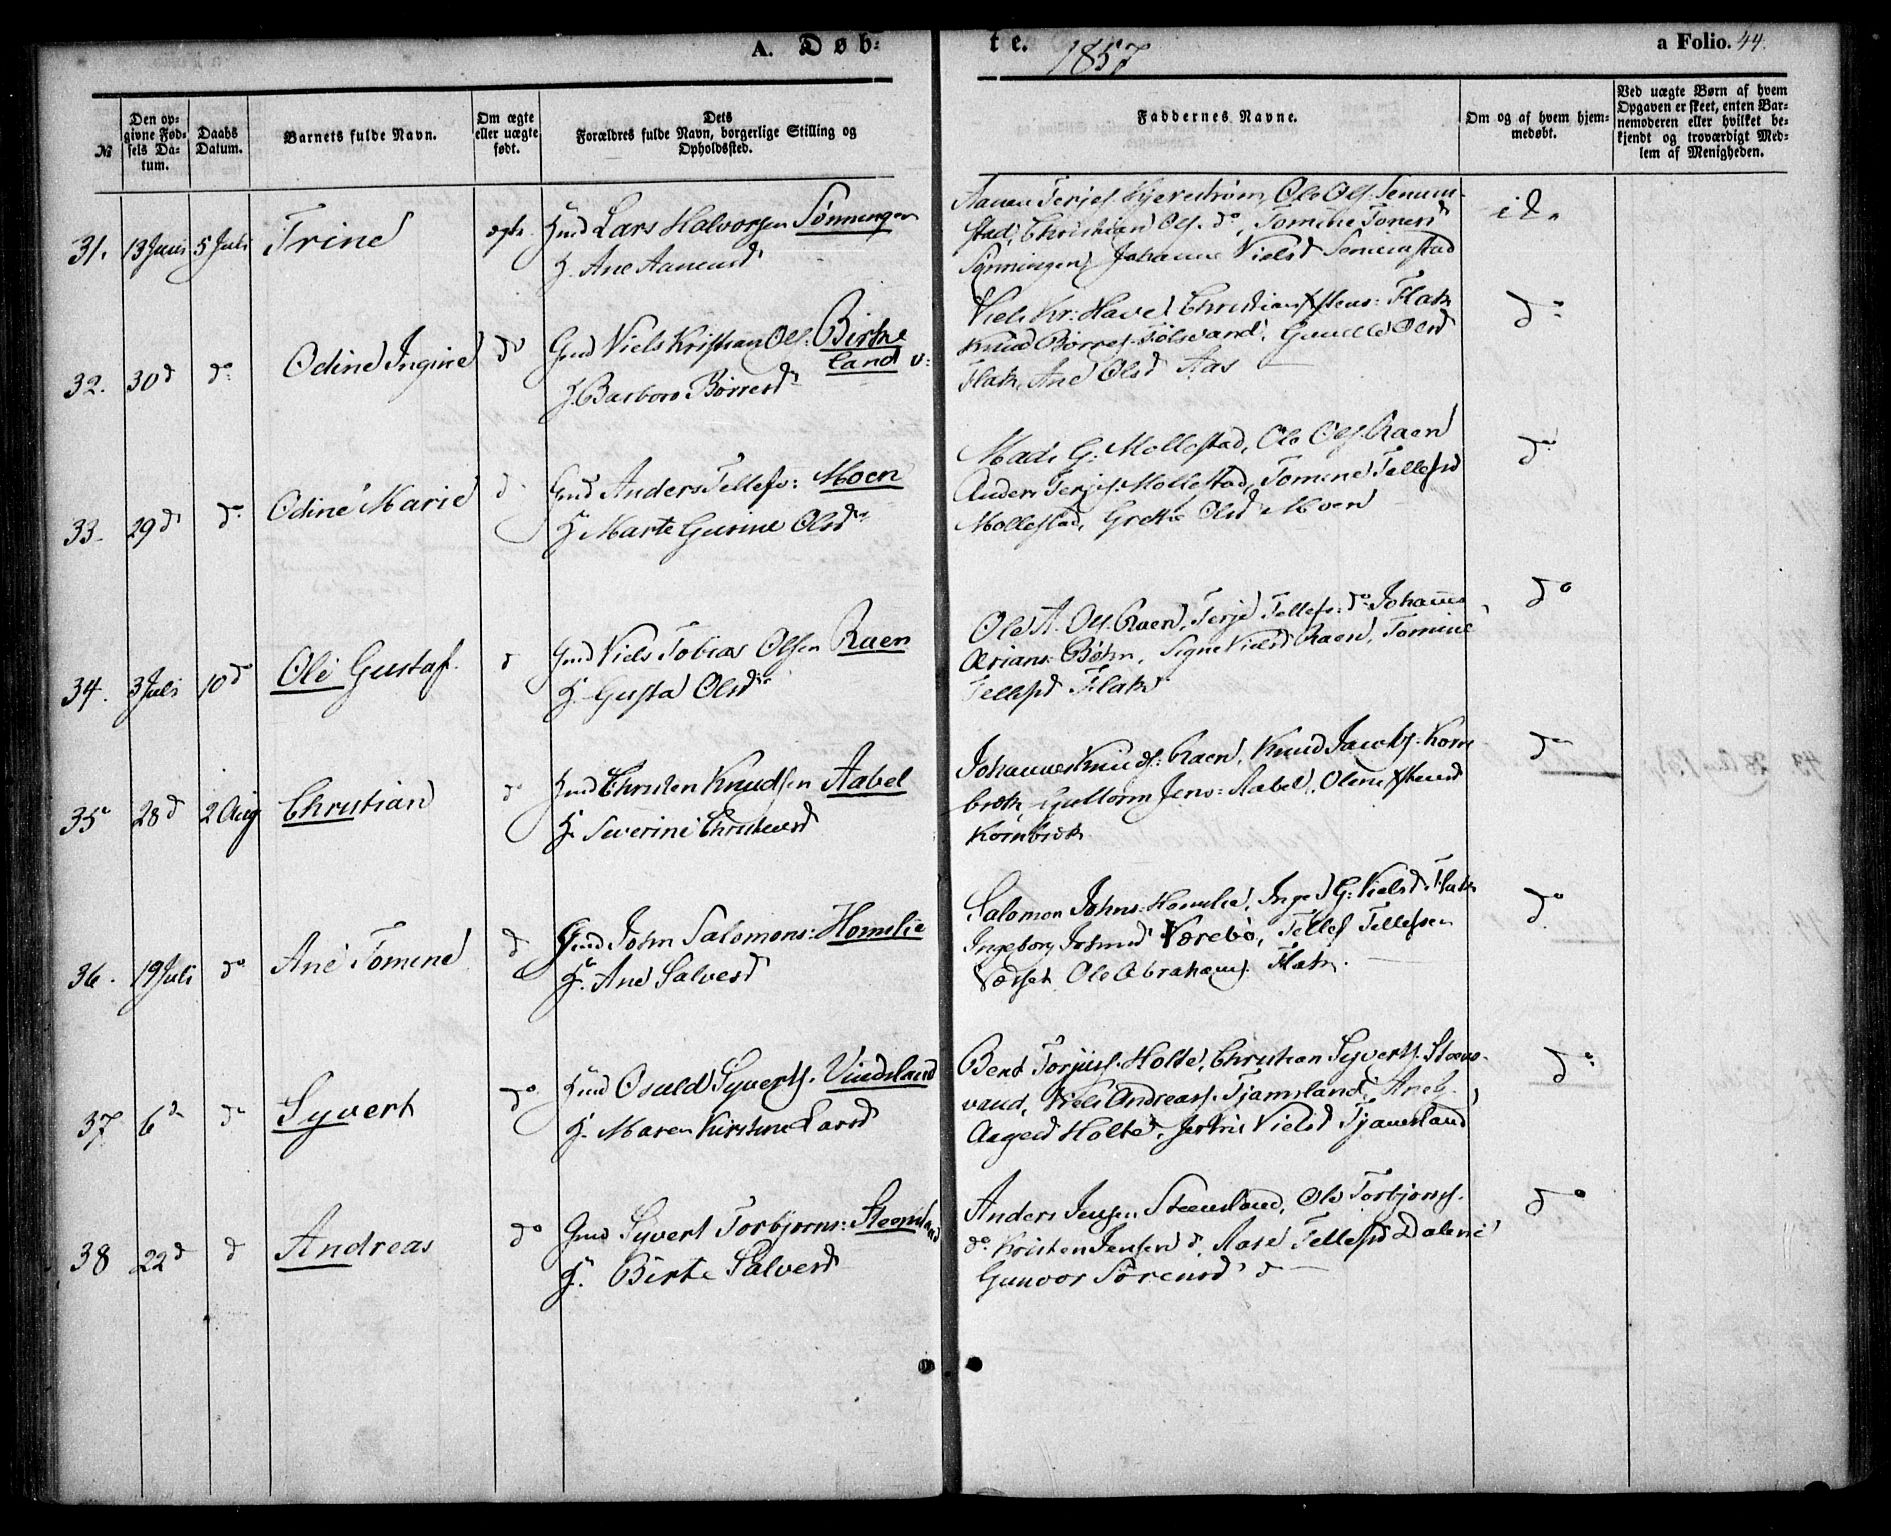 A. Døb-
te. 1857
a Folio. 44.
№
Den opgivne Fødsels Datum.
Daabs Datum.
Barnets fulde Navn.
Om ægte eller uægte født.
Dets Forældres fulde Navn, borgerlige Stilling og Opholdssted.
Faddernes Navne.
Om og af hvem hjemmedøbt.
Ved uægte Børn af hvem Opgaven er skeet, enten Barnemoderen eller hvilket bekjendt og troværdigt Medlem af Menigheden.
31. 13 Juni 5 Juli Trine ægte. Hmd Lars Halvorsen Sønningen
H. Ane Aanensd
Aanen Terjes. Ole Ols.
stad, Christian Ols. do, Tomine
Sønningen, Johanne Nielsd
i d.
32. 30 d do Odine Ingine do Gmd Niels Kristian Ols: Birke
land v:
H. Barbro Børresd
Niels Kr: Have Christian Flak
Knud Børres. Gunild Olsd
Flak, Ane Olsd Aas
do
33. 29 d do Odine Marie d Gmd Anders Tellefs: Moen
H. Marte Gurine Olsd
Mads G: Mollestad, Ole Ols. Raen
Anders Terjes. Mollestad, Tomine Tellefsd
Mollestad, Grethe Olsd Moen
do
34. 3 Juli 10 d Ole Gustaf. d Gmd Niels Tobias Olsen Raen
H. Gusta Olsd
Ole A. Ols. Raen, Terje Tellefs: do Johanne
Arians: Bøhn, Signe Nielsd Raen, Tomine
Tellefsd Flak
do
35 28 d 2 Aug Christian do Hmd Christen Knudsen Aabel
H. Severine Christensd
Johannes Knuds: Raen, Knud Jacobs. Korn
bræk, Guttorm Jens: Aabel, Oline
Kornbræk
do
36. 19 Juli do Ane Tomine d Gmd John Salomons: Homelie
H. Ane Salvesd
Salomon Johns: Homelie, Inger G: Nielsd Flak
Ingeborg Værebø, Tellef Tellefsen
Ole Abrahams. Flak.
do
37 6 d do Syvert do. Hmd Osuld Syverts. Vindsland
H. Maren Kirstine Larsd
Bent Torjus. Holte, Christian Syverts. Steens-
vand, Niels Andreas. Tjamsland,
Aagesd Holte, Nielsd Tjamsland
do
38 22 d d Andreas do Gmd Syvert Torbjørns: Steensland
H. Birte Salvesd
Anders Jensen Steensland, Ole Torbjørns.
do. Kristen Jensen d, Aase Tellefsd Dalene
Gunvor Sørensd d
do